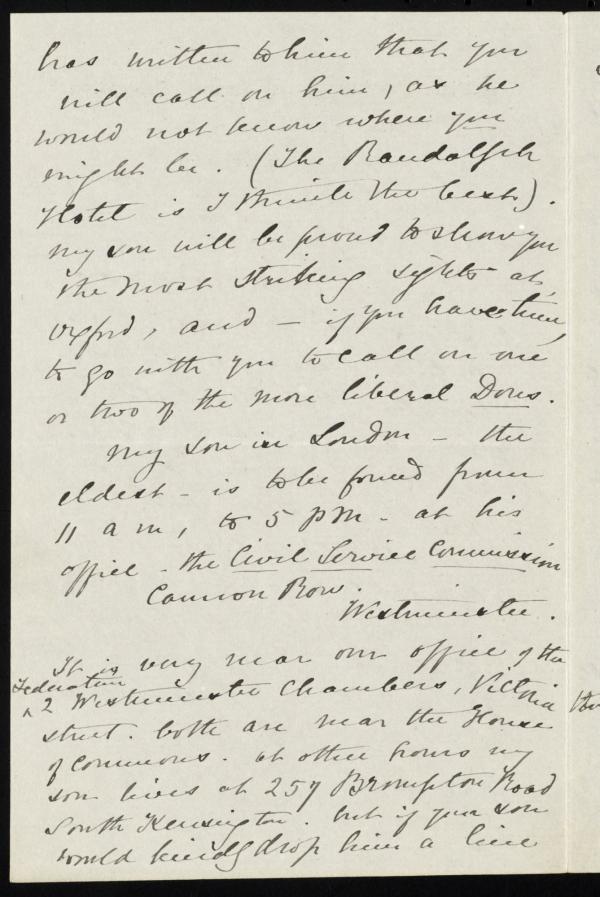 has written to him that you
will call on him, as he
would not know where you
might be. (The Randolph
Hotel is I think the best).
my son will be proud to show you
the most striking sights at
Oxford, and – if you have time,
to go with you to call on one
or two of the more liberal Dons.
my son in London – the
eldest – is to be found from
11 a m, to 5 PM – at his
office – the Civil Service Commission
Cannon Row.
Westminster.
It is very near our office of the
Federation
^ 2 Westminster Chambers, Victoria
street. both are near the House
of Commons. at other hours my
son lives at 257 Brompton Road
South Kensington. but if your son
would kindly drop him a line